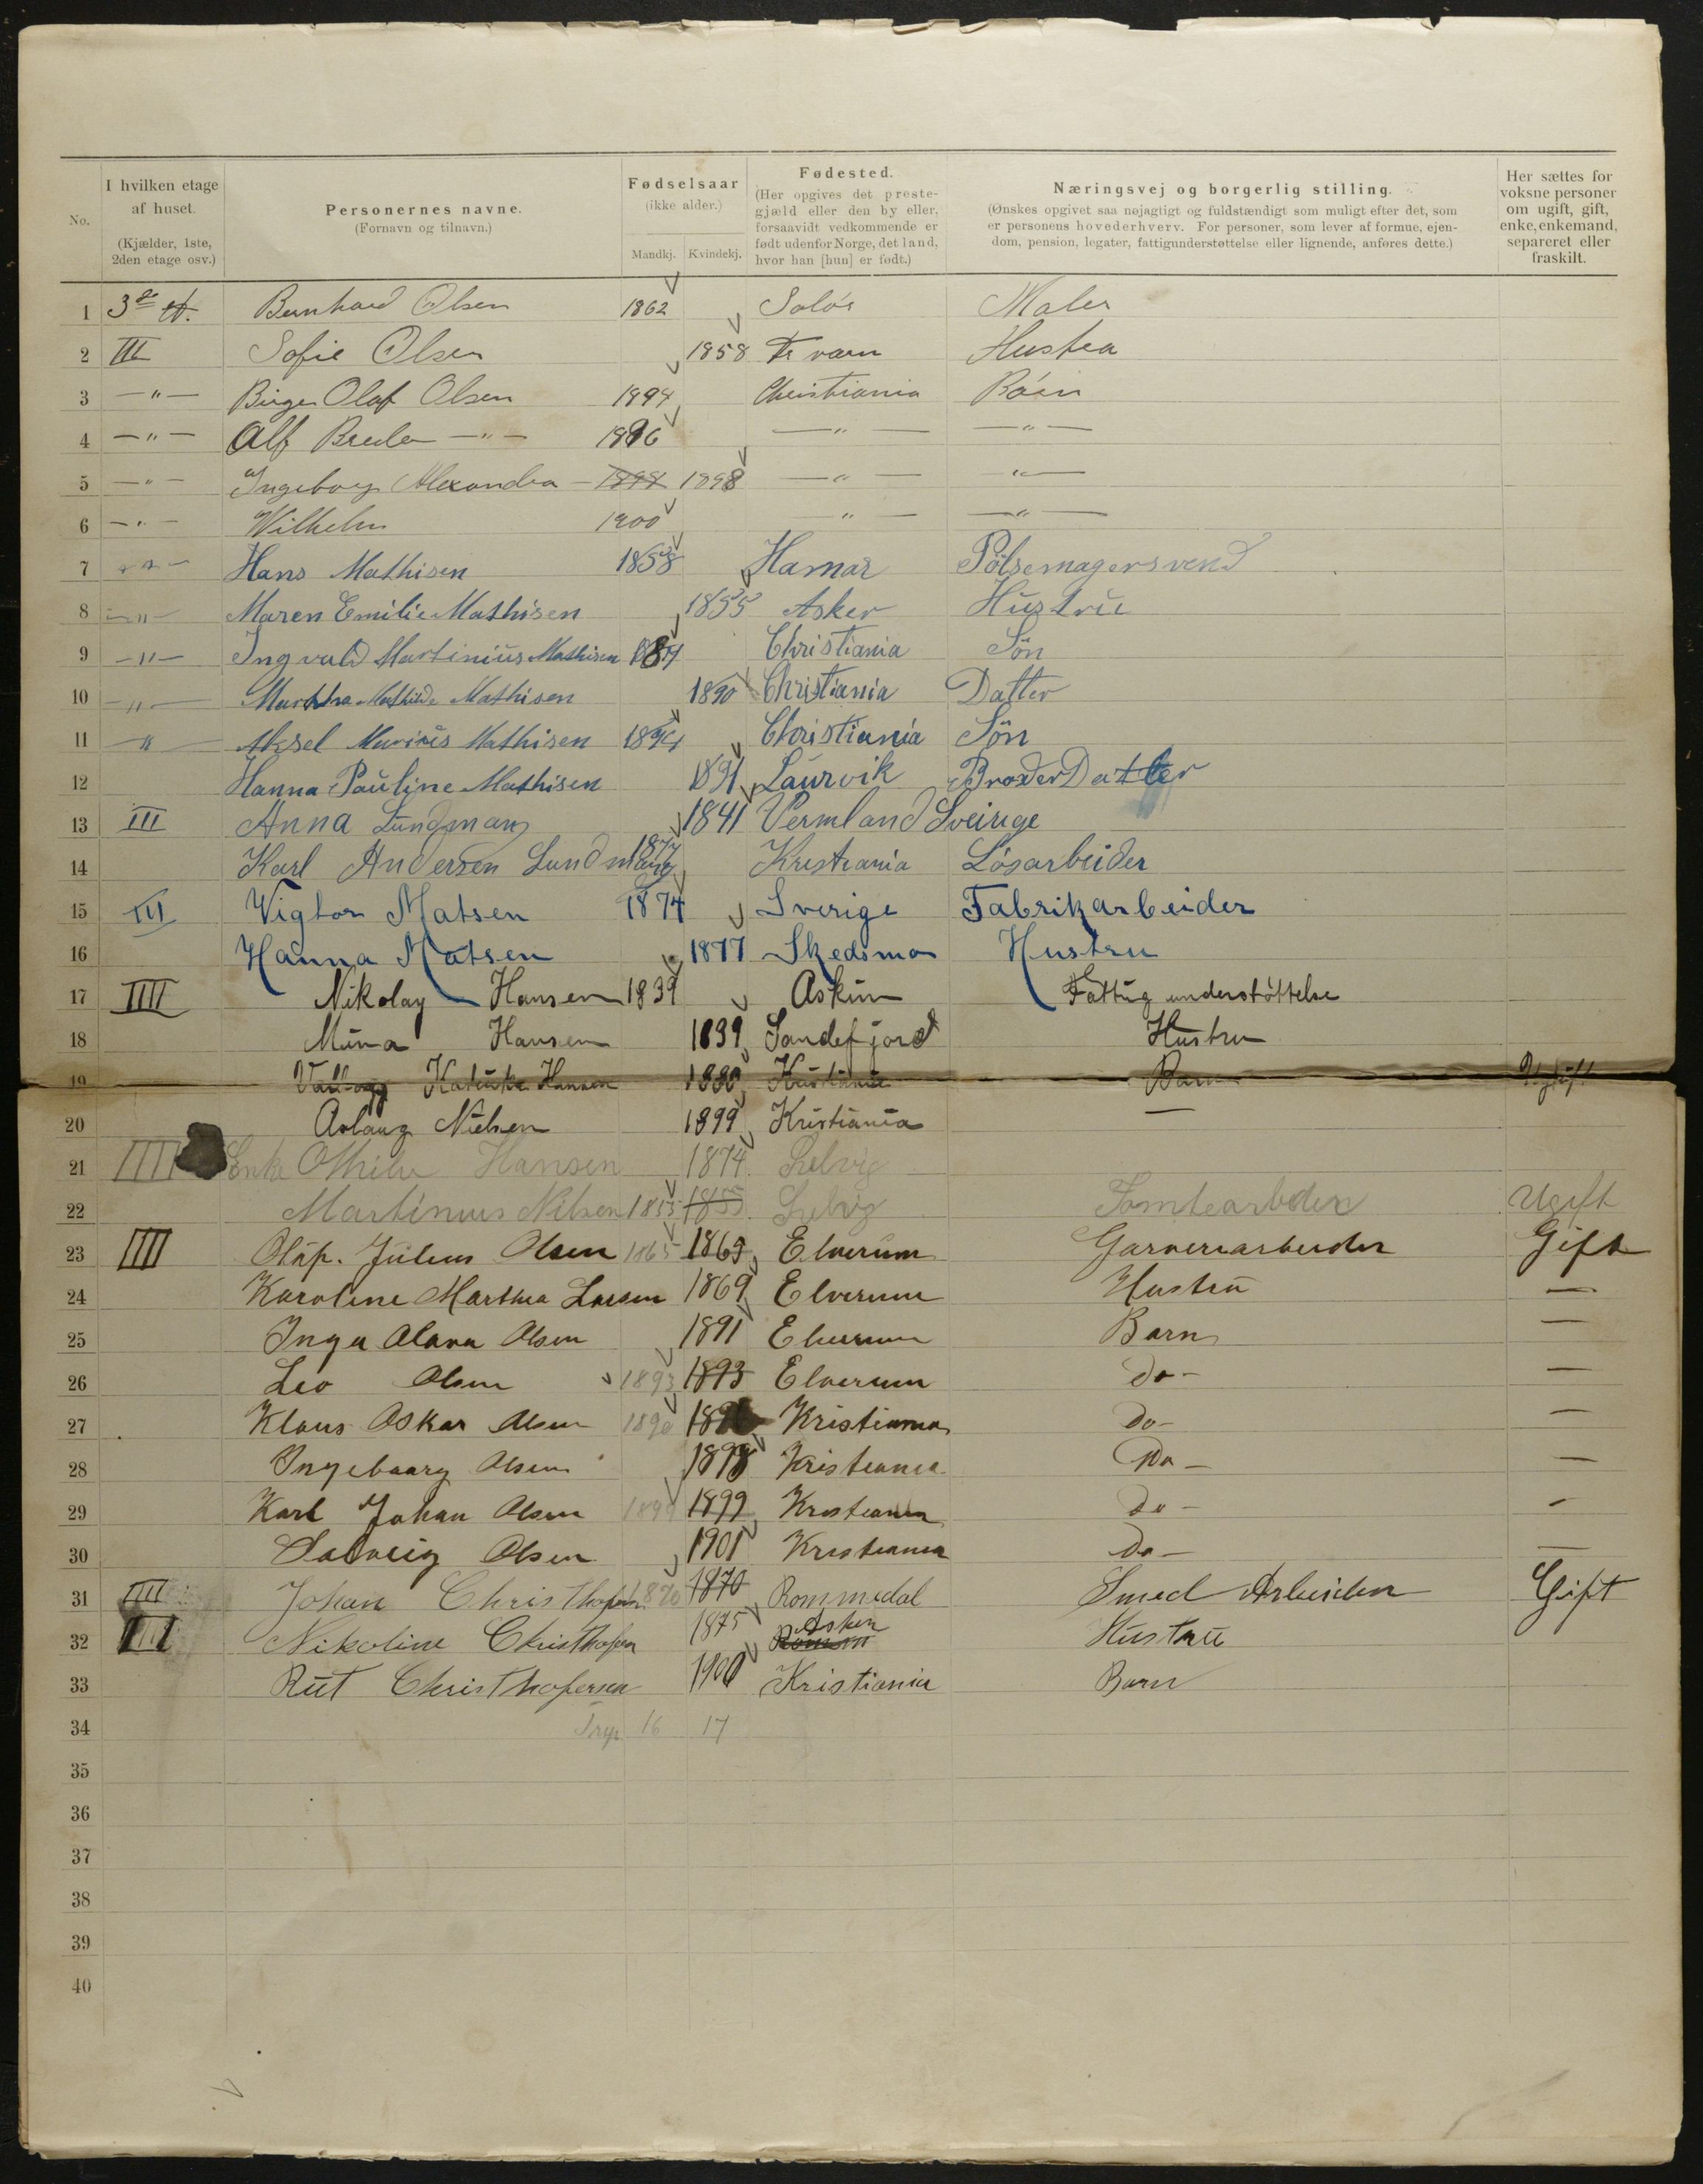 No.
I hvilken etage af huset. (Kjælder, 1ste, 2den etage osv.)
Personernes navne. (Fornavn og tilnavn.)
Fødselsaar (ikke alder.) Mandkj. Kvindekj.
Fødested. (Her opgives det prestegjæld eller den by eller, forsaavidt vedkommende er født udenfor Norge, det land, hvor han [hun] er født.)
Næringsvej og borgerlig stilling. (Ønskes opgivet saa nøjagtigt og fuldstændigt som muligt efter det, som er personens hovederhverv. For personer, som lever af formue, ejendom, pension, legater, fattigunderstøttelse eller lignende, anføres dette.)
Her sættes for voksne personer om ugift, gift, enke, enkemand, separeret eller fraskilt.
1 3de et. Bernhard Olsen 1862 Solør Maler
2 III Sofie Olsen 1858 Hustru
3 —"— Birger Olaf Olsen 1894 Christiania Børn
4 —"— Alf —"— 1896 —"— —"—
5 —"— Ingeborg Alexandra — 1898 1898 —"— —"—
6 —"— Wilhelm 1900 —"— —"—
7 —"— Hans Mathisen 1858 Hamar Pölsemagersvend
8 —"— Maren Emilie Mathisen 1855 Asker Hüstrü
9 —"— Ingvald Martiniüs Mathisen Christiania Sön
10 —"— Martha Mathilde Mathisen 1890 Christiania Datter
11 —"— Aksel Mathisen 1894 Christiania Sön
12 Hanna Paüline Mathisen 1891 Laürvik BroderDatter
13 III Anna Lundmann 1841 Vermland Sveirige
14 Karl Andersen Lundmann 1877 Kristiania Lösarbeider
15 III Wigtor Matsen 1874 Sverige Fabrikarbeider
16 Hanna Matsen 1877 Skedsmo Hustru
17 IIII Nikolay Hansen 1839 Askim Fattig understøttelse
18 Mina Hansen 1839 Sandefjord Hustru
19 Valborg Hansen 1880 Kristiania Barn Ugift
20 Aslaug Nielsen 1899 Kristiania —
21 IIII Enke Othilie Hansen 1874 Selvig
22 Martinius Nilsen 1855 1855 Selvig Tomtearbeider Ugift
23 IIII Olaf. Julius Olsen 1865 1865 Elverum Garveriarbeider Gift
24 Karoline Marthea Larsen 1869 Elverum Hustru —
25 Inga Olava Olsen 1891 Elverum Barn —
26 Leo Olsen 1893 1893 Elverum do- —
27 Klaus Oskar Olsen 1896 Kristiania do- —
28 Ingebaarg Olsen 1898 Kristiania Do- —
29 Karl Johan Olsen 1899 1899 Kristiania do- -
30 Solveig Olsen 1901 Kristiania do- —
31 IIII Johan Christhofersen 1870 1870 Rommedal Smed Arbeider Gift
32 IIII Nikoline Christhofersen 1875 Romm Asker Hüstrü
33 Rüt Christhofersen 1900 Kristiania Barn
34 16 17
35
36
37
38
39
40